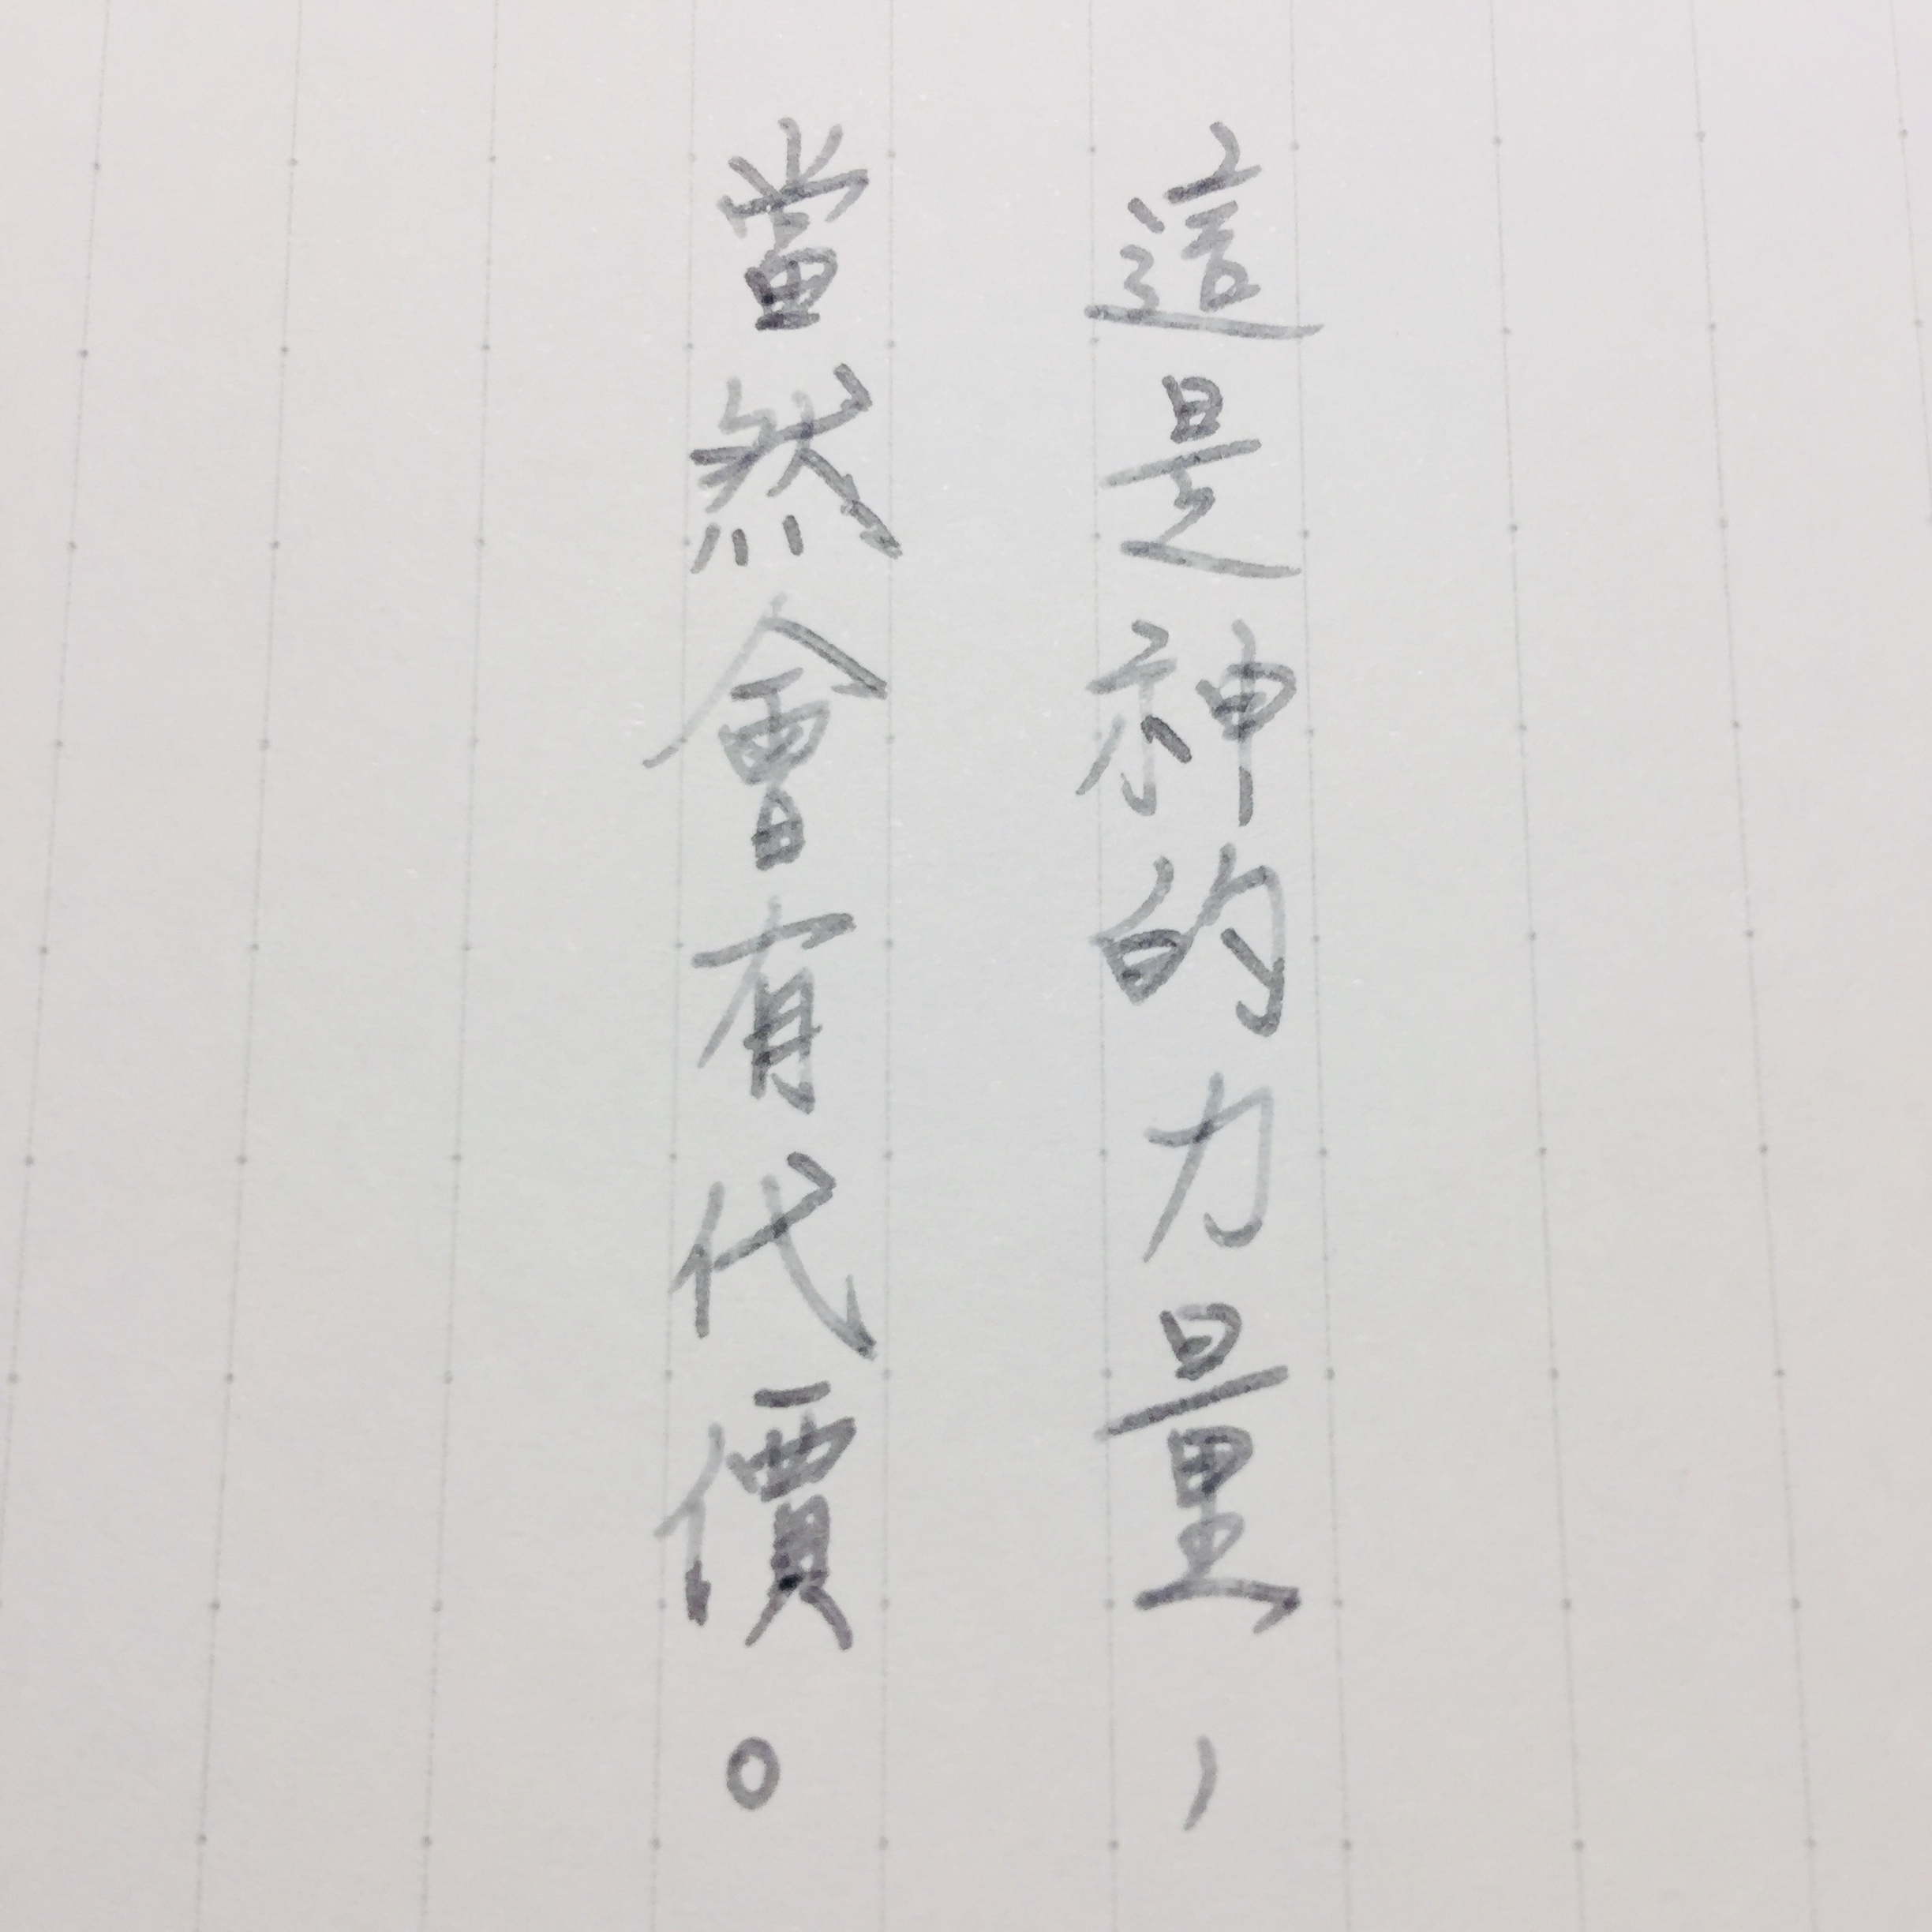 這是神的力量，
當然會有代價。